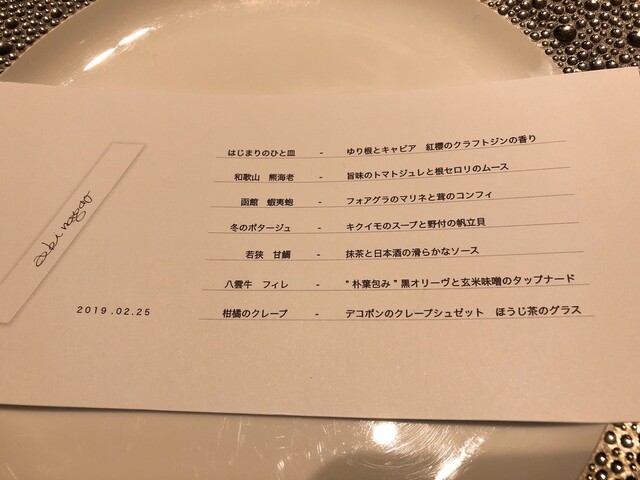 はじまりのひと皿 - ゆり根とキャビア 紅櫻のクラフトジンの香り
和歌山 熊海老 - 旨味のトマトジュレと根セロリのムース
函館 蝦夷鮑 - フォアグラのマリネと茸のコンフィ
冬のポタージュ - キクイモのスープと野付の帆立貝
若狭 甘鯛 - 抹茶と日本酒の滑らかなソース
八雲牛 フィレ - “朴葉包み”黒オリーヴと玄米味噌のタップナード
柑橘のクレープ - デコポンのクレープシュゼット ほうじ茶のグラス
2019.02.25